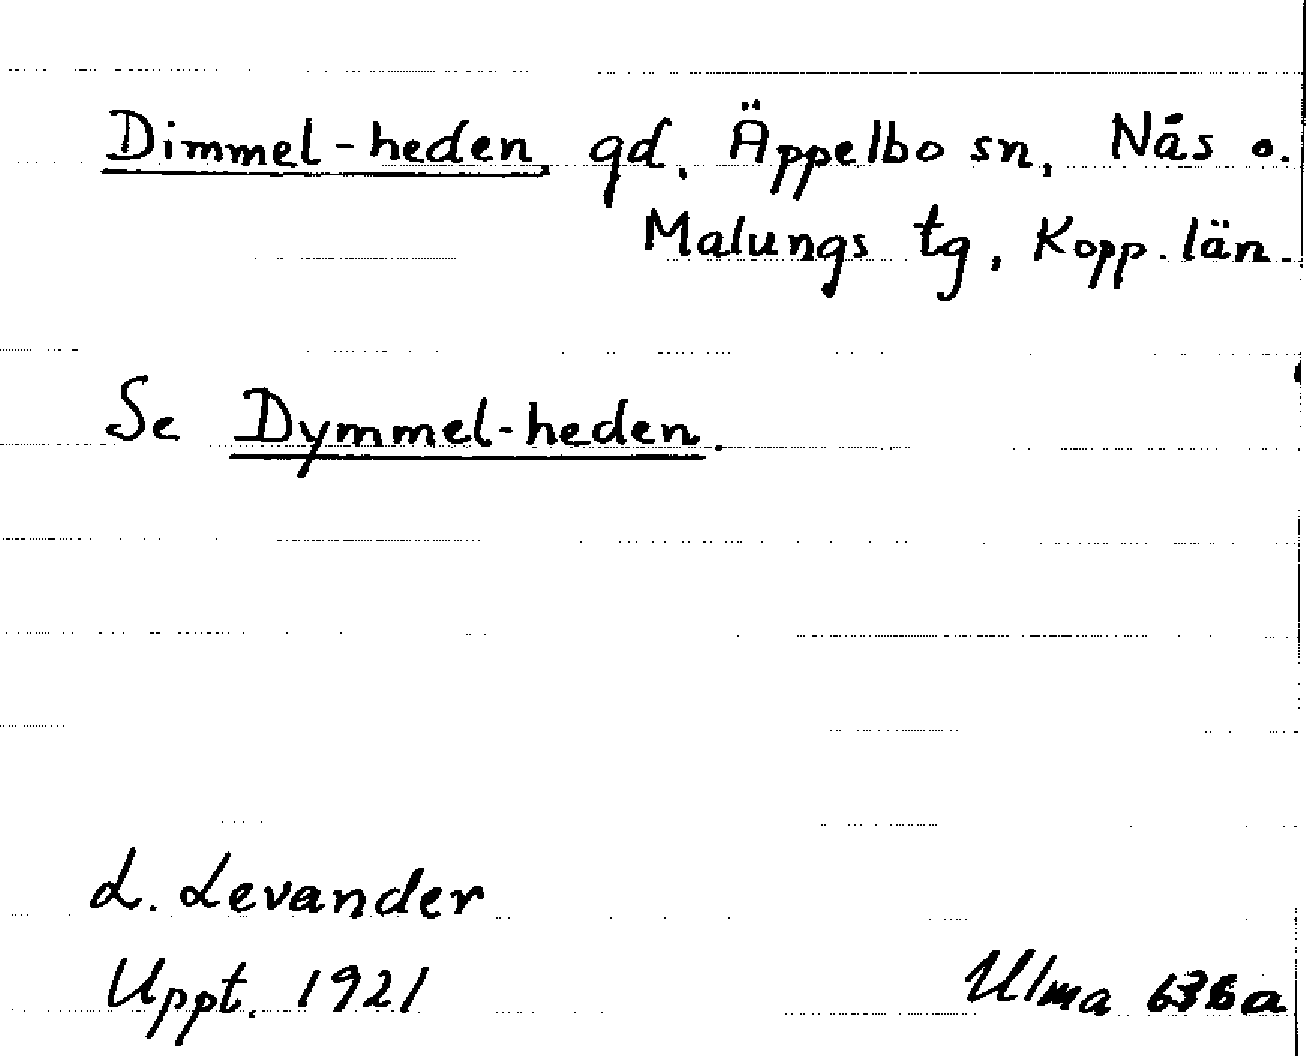 Dimmel-heden, gd. Äppelbo sn, Nås o.
Malungs tg, Kopp. län.
Se Dymmel-heden.
L. Levander
Uppt. 1921
Ulma